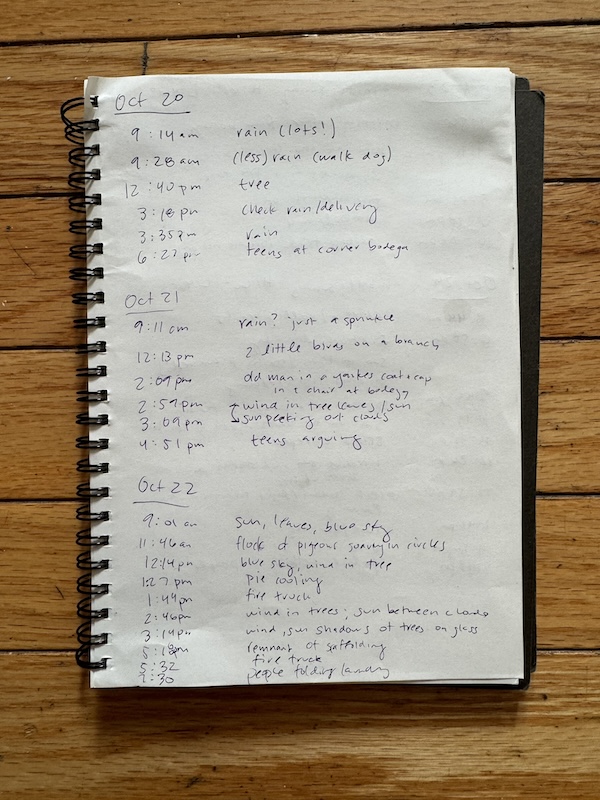 Oct 20
9:14am rain (lots!)
9:28am (less) rain (walk dog)
12:40pm tree
3:18pm check rain/delivery
3:35pm rain
6:27pm teens at corner bodega
Oct 21
9:11am rain? just a sprinkle
12:13pm 2 little birds on a branch
2:09pm old man in a yankees coat + cap
in a chair at bodega
2:57pm wind in tree leaves/sun
3:09pm sun peeking out clouds
4:51pm teens arguing
Oct 22
9:01am sun, leaves, blue sky
11:46am flock of pigeons in circles
12:14pm blue sky, wind in tree
1:27pm pie cooling
1:49pm fire truck
2:46pm wind in trees; sun between clouds
3:14pm wind, sun shadows of trees on glass
5:18pm remnant of
5:32 fire truck
7:30 people folding laundry